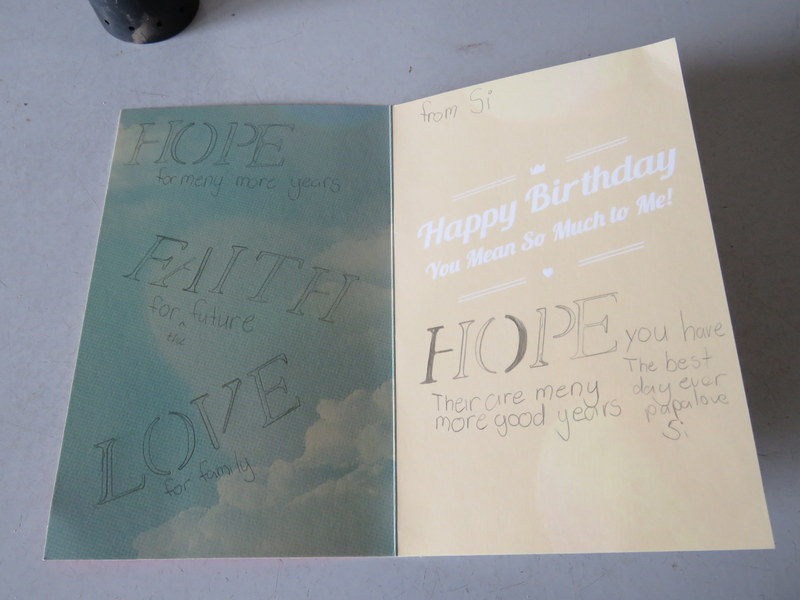 HOPE
for meny more years
FAITH
for the future
LOVE
for family
from Si
Happy Birthday
You Mean So Much to Me!
HOPE you have
The best
day ever
papa love
Si
Their are meny
more good years